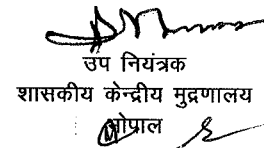 उप नियंत्रक
शासकीय केन्द्रीय मुद्रणालय
भोपाल